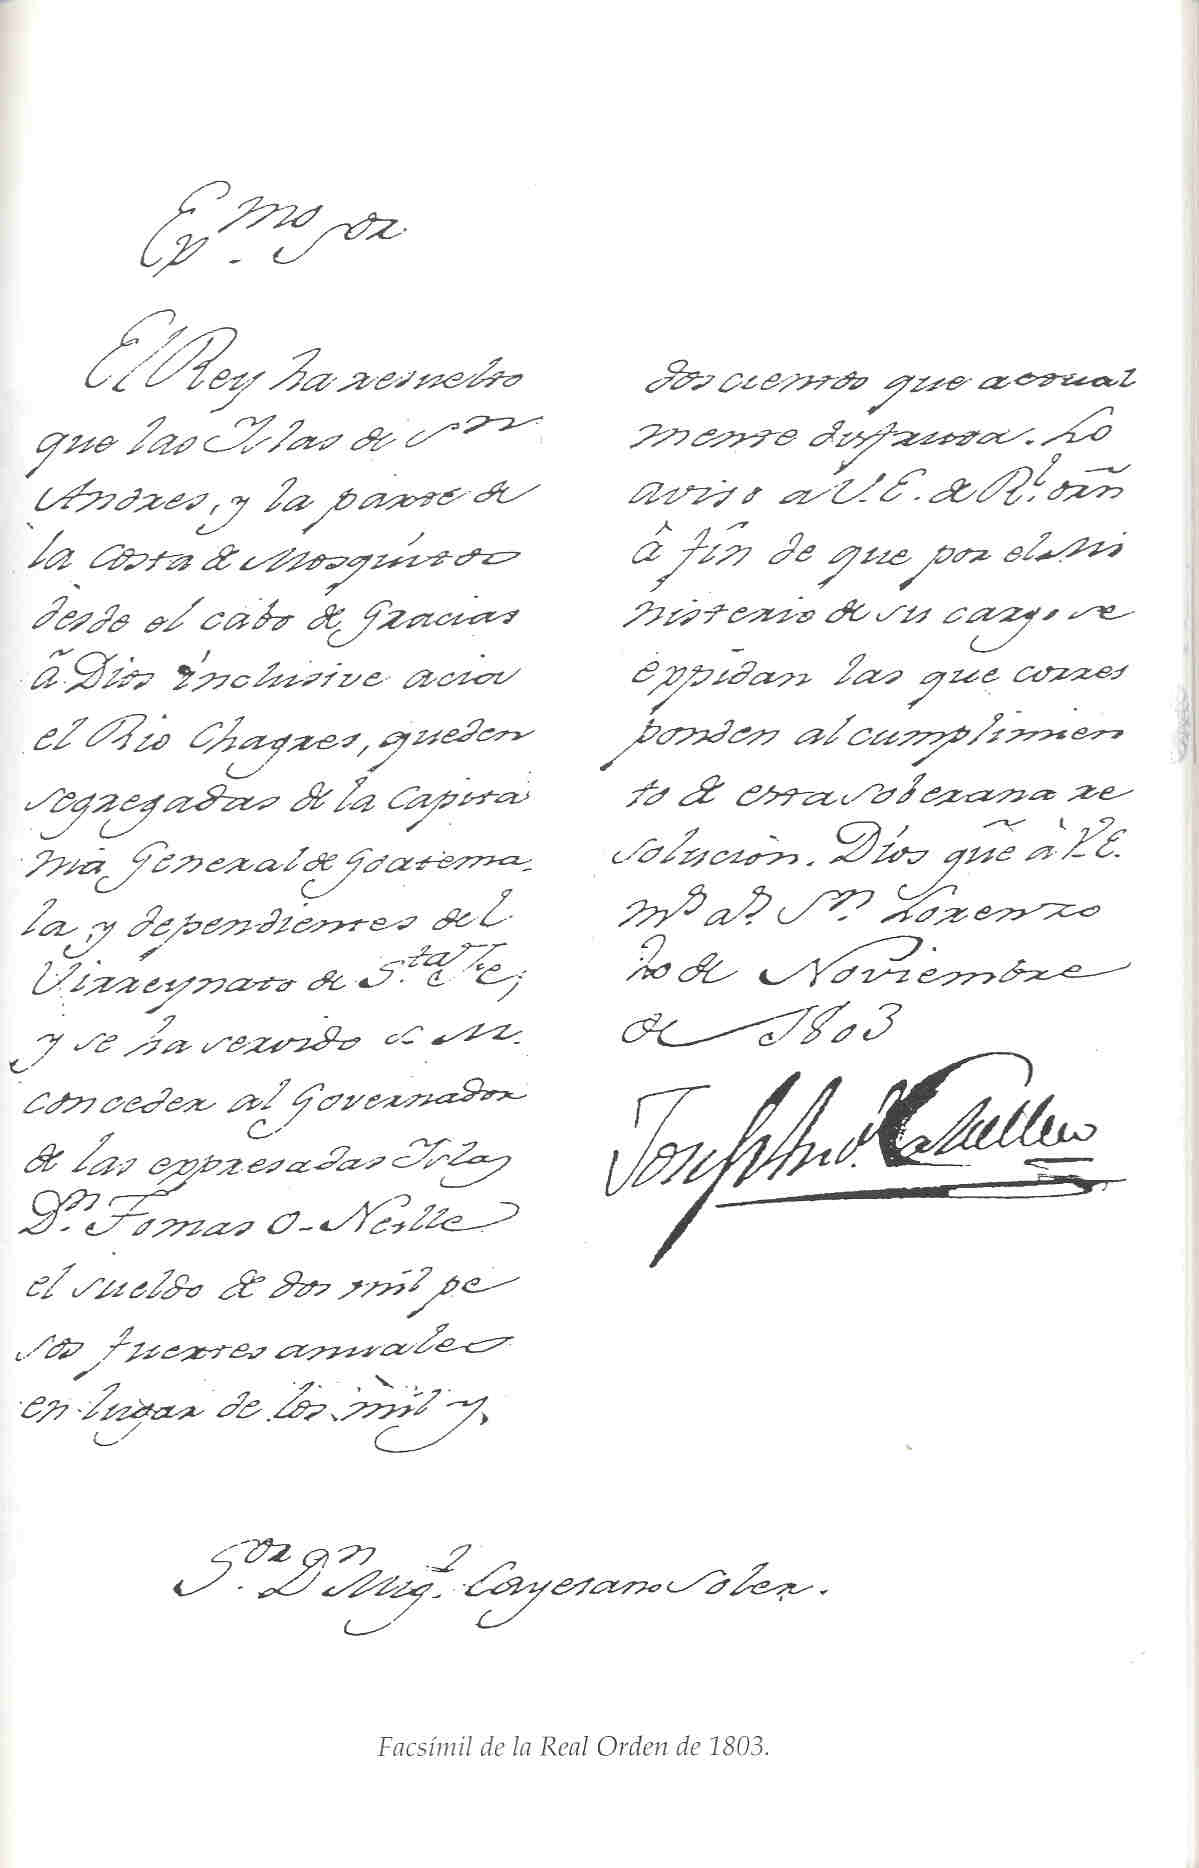 Exmo Sor
El Rey ha resuelto
que las Yslas de Sn
Andres, y la parte de
la costa de Mosquitos
desde el cabo de Gracias
â Dios inclusive acia
el Rio Chagres, queden
segregadas de la Capita
nia General de Goatema
la, y dependientes del
Virreynato de S.ta Fe;
y se ha servido S. M.
conceder al Governador
de las expresadas Yslas
Dn. Tomas O-Neille
el sueldo de dos mil pe
sos fuertes anuales
en lugar de los mil y
doscientos que actual
mente disfruta. Lo
aviso a V.E. de Rl. orñ
â fin de que por el Mi
nisterio de su cargo se
expidan las que corres
ponden al cumplimien
to de esta soberana re
solucion. Dios gũe â V.E.
ms. as. Sn. Lorenzo
20 de Noviembre
de 1803
Josef Anto. Caballero
Sor. Dn Migl. Cayetano Soler.
Facsímil de la Real Orden de 1803.